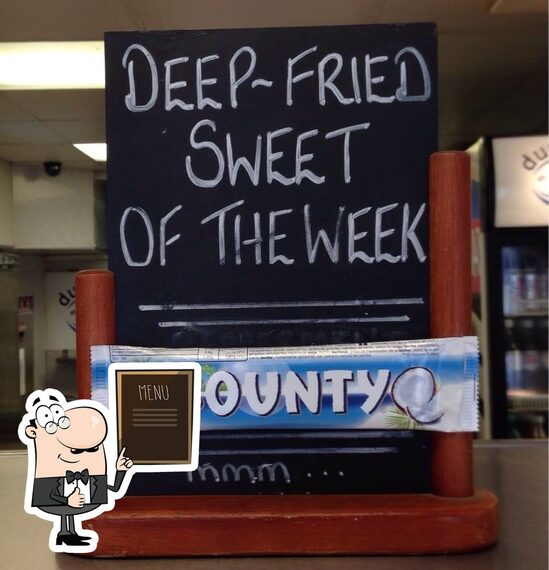 DEEP-FRIED
SWEET
OF THE WEEK
OUNTY
MENU
mmm ...